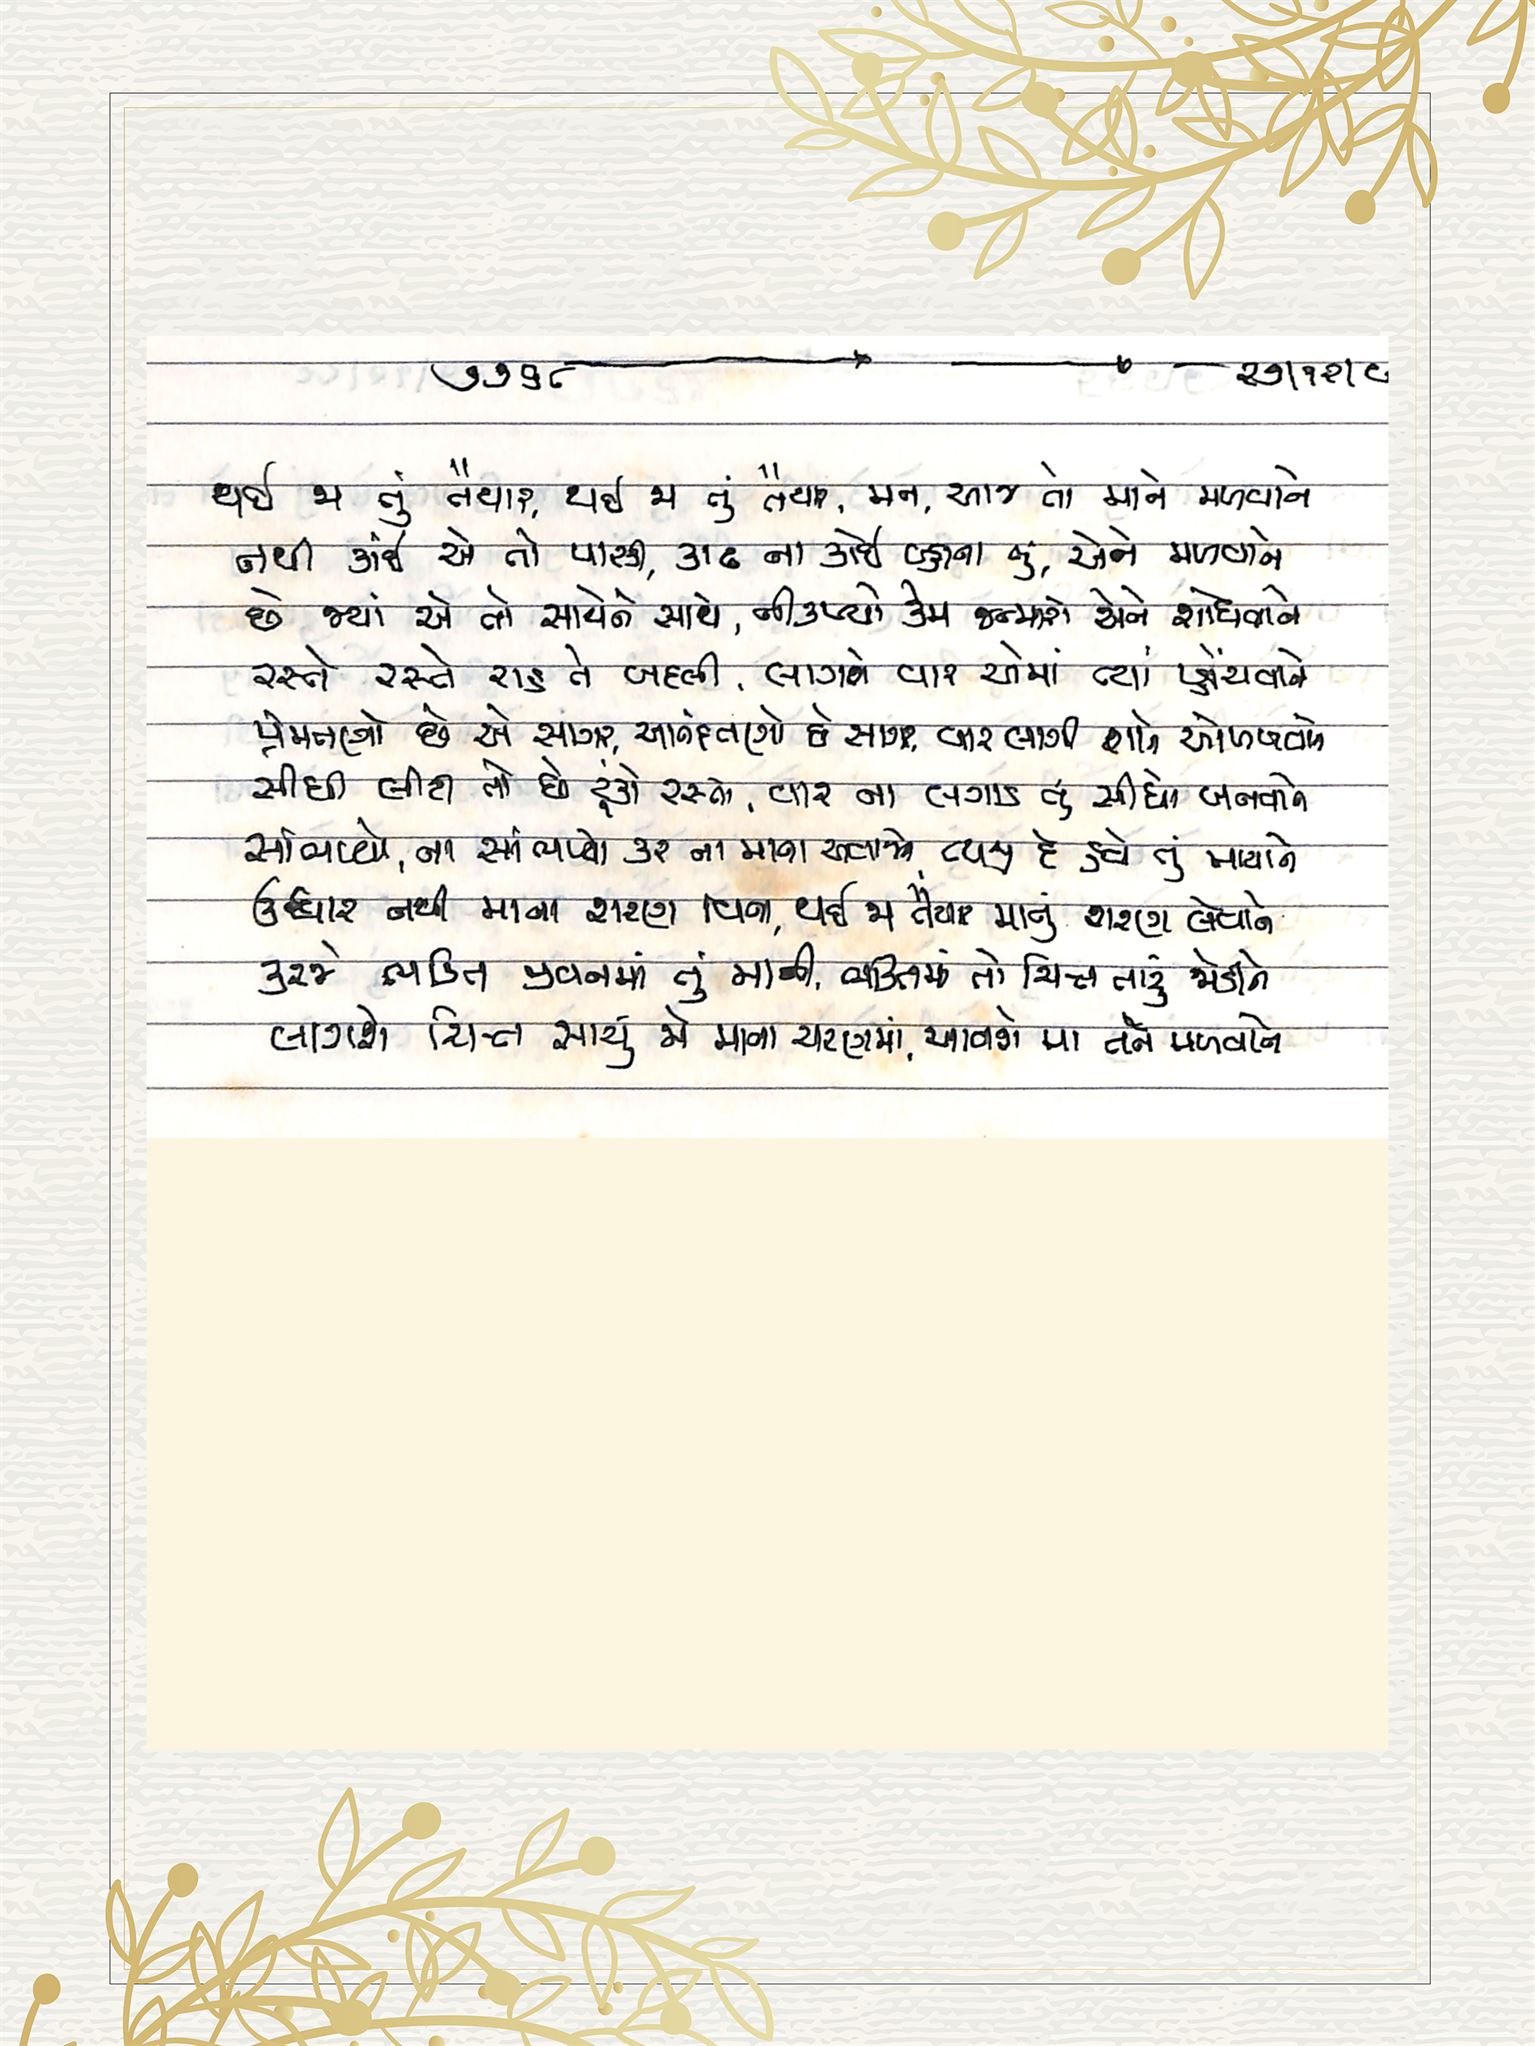 ૭૭૧૮ ૨૭/૧૨/૯
થઈ જા તું તૈયાર, થઈ જા તું તૈયાર, મન, આજ તો માને મળવાને
નથી કાંઈ એ તો પારકી, કાઢ ના કોઈ બહાના તું, એને મળવાને
છે જ્યાં એ તો સાથેને સાથે, નીકળ્યો કેમ જન્મારો એને શોધવાને
રસ્તે રસ્તે રાહ તે બદલી, લાગશે વાર એમાં ત્યાં પ્હોંચવાને
પ્રેમતણો છે એ સાગર, આનંદતણો છે સાગર, વાર લાગી શાને ઓળખવાને
સીધી લીટી તો છે ટૂંકો રસ્તો, વાર ના લગાડ તું સીધો બનવાને
સાંભળ્યો, ના સાંભળ્યો કર ના માના અવાજને, ત્યજી દે હવે તું માયાને
ઉદ્ધાર નથી માના શરણ વિના, થઈ જા તૈયાર માનું શરણ લેવાને
કરજે ભક્તિ જીવનમાં તું માની, ભક્તિમાં તો ચિત્ત તારું જોડીને
લાગશે ચિત્ત સાચું જો માના ચરણમાં, આવશે મા તને મળવાને